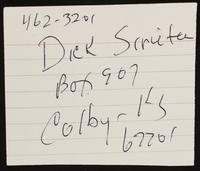 462-3201
Dick
Box 907
Colby - Ks
67701